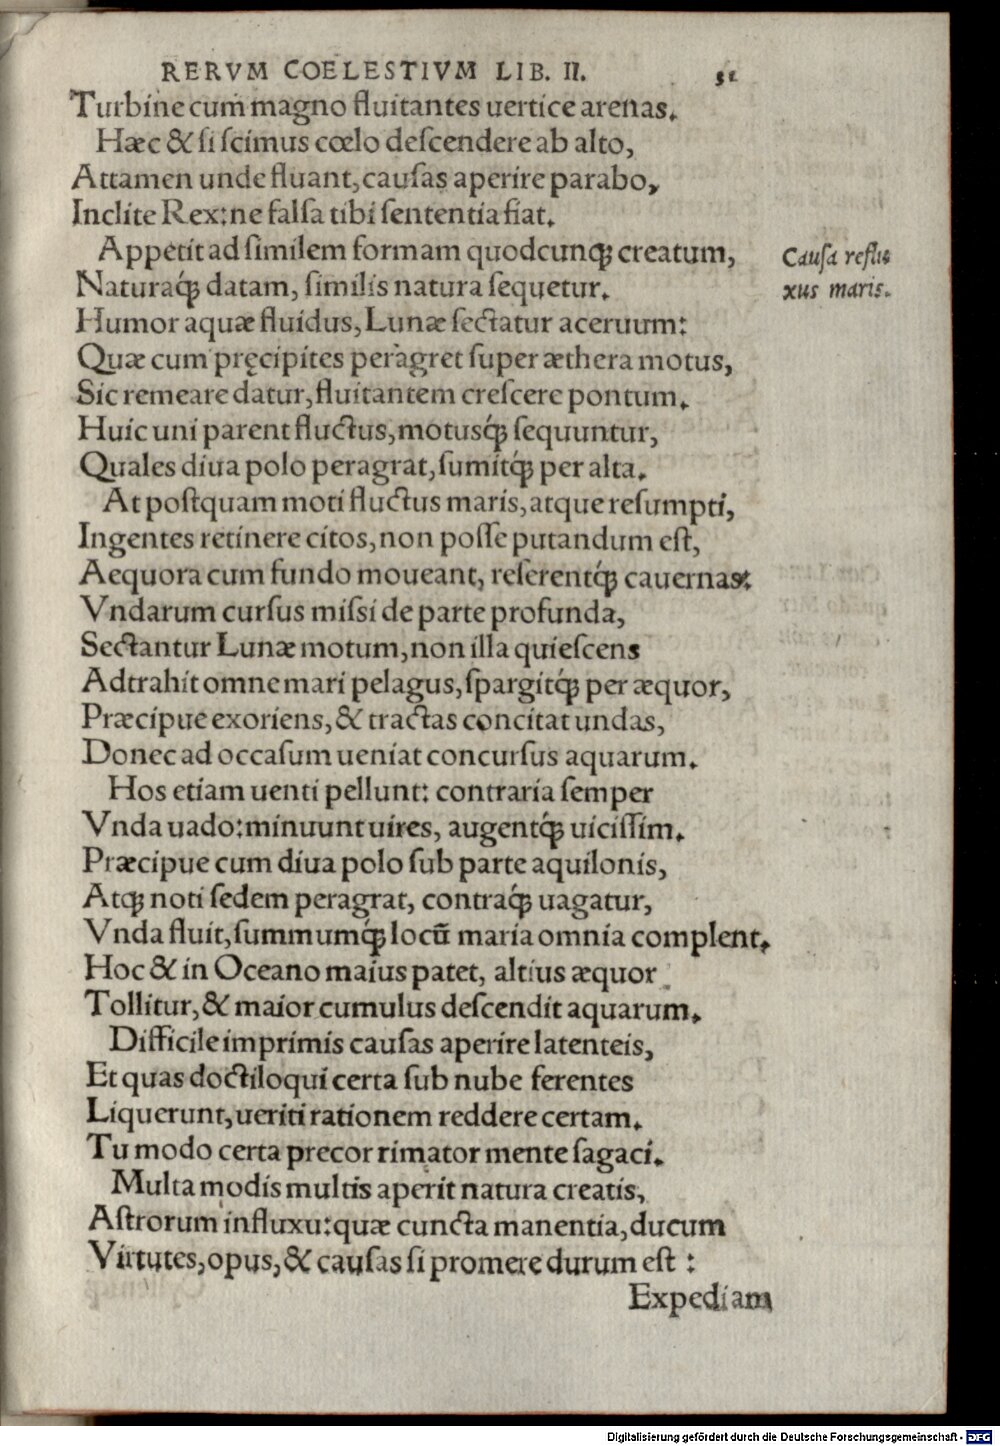 RERVM COELESTIVM LIB. II. 51
Turbine cum magno fluitantes uertice arenas.
Hæc & si scimus cœlo descendere ab alto,
Attamen unde fluant, causas aperire parabo,
Inclite Rex: ne falsa tibi sententia fiat.
Appetit ad similem formam quodcunq; creatum,
Causa reflu
Naturaq́; datam, similis natura sequetur.
xus maris.
Humor aquæ fluidus, Lunæ sectatur aceruum:
Quæ cum pręcipites peragret super æthera motus,
Sic remeare datur, fluitantem crescere pontum.
Huic uni parent fluctus, motusq́; sequuntur,
Quales diua polo peragrat, sumitq́; per alta.
At postquam moti fluctus maris, atque resumpti,
Ingentes retinere citos, non posse putandum est,
Aequora cum fundo moueant, reserentq́; cauernas:
Vndarum cursus missi de parte profunda,
Sectantur Lunæ motum, non illa quiescens
Adtrahit omne mari pelagus, spargitq́; per æquor,
Præcipue exoriens, & tractas concitat undas,
Donec ad occasum ueniat concursus aquarum.
Hos etiam uenti pellunt: contraria semper
Vnda uado: minuunt uires, augentq́; uicissim.
Præcipue cum diua polo sub parte aquilonis,
Atq; noti sedem peragrat, contraq́; uagatur,
Vnda fluit, summumq́; locū maria omnia complent.
Hoc & in Oceano maius patet, altius æquor
Tollitur, & maior cumulus descendit aquarum.
Difficile imprimis causas aperire latenteis,
Et quas doctiloqui certa sub nube ferentes
Liquerunt, ueriti rationem reddere certam.
Tu modo certa precor rimator mente sagaci.
Multa modis multis aperit natura creatis,
Astrorum influxu: quæ cuncta manentia, ducum
Virtutes, opus, & causas si promere durum est :
Expediam
Digitalisierung gefördert durch die Deutsche Forschungsgemeinschaft - DFG